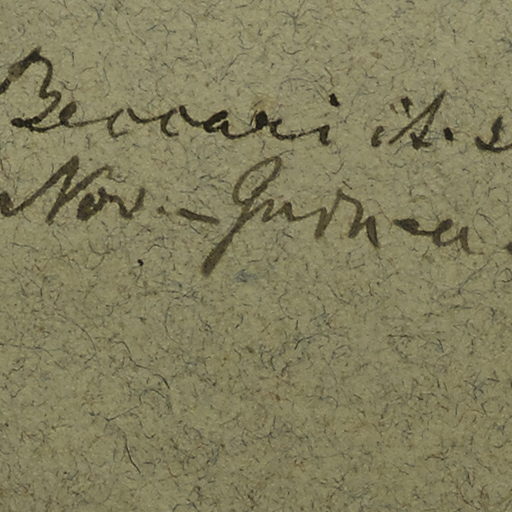 Beccari it. s
Nov.-Guinea.